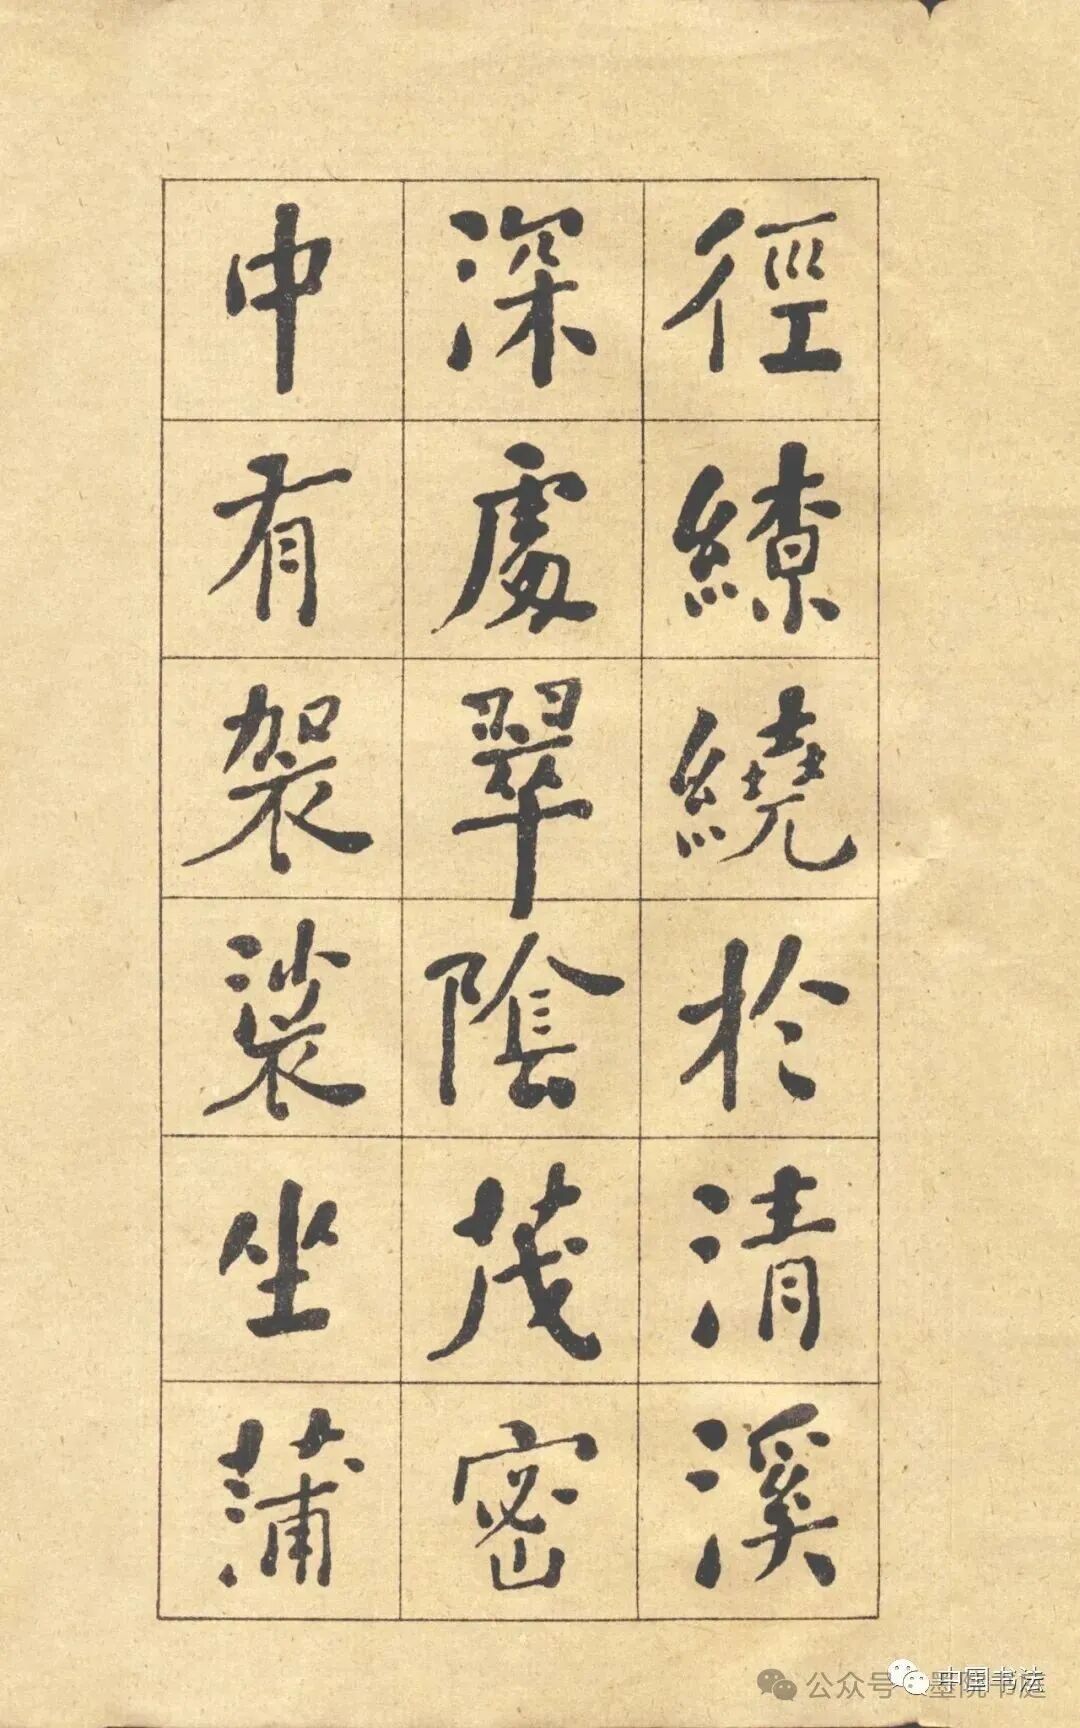 徑繚繞於清溪
深處翠陰茂密
中有袈裟坐蒲
公众号·墨院书庭
中国书法